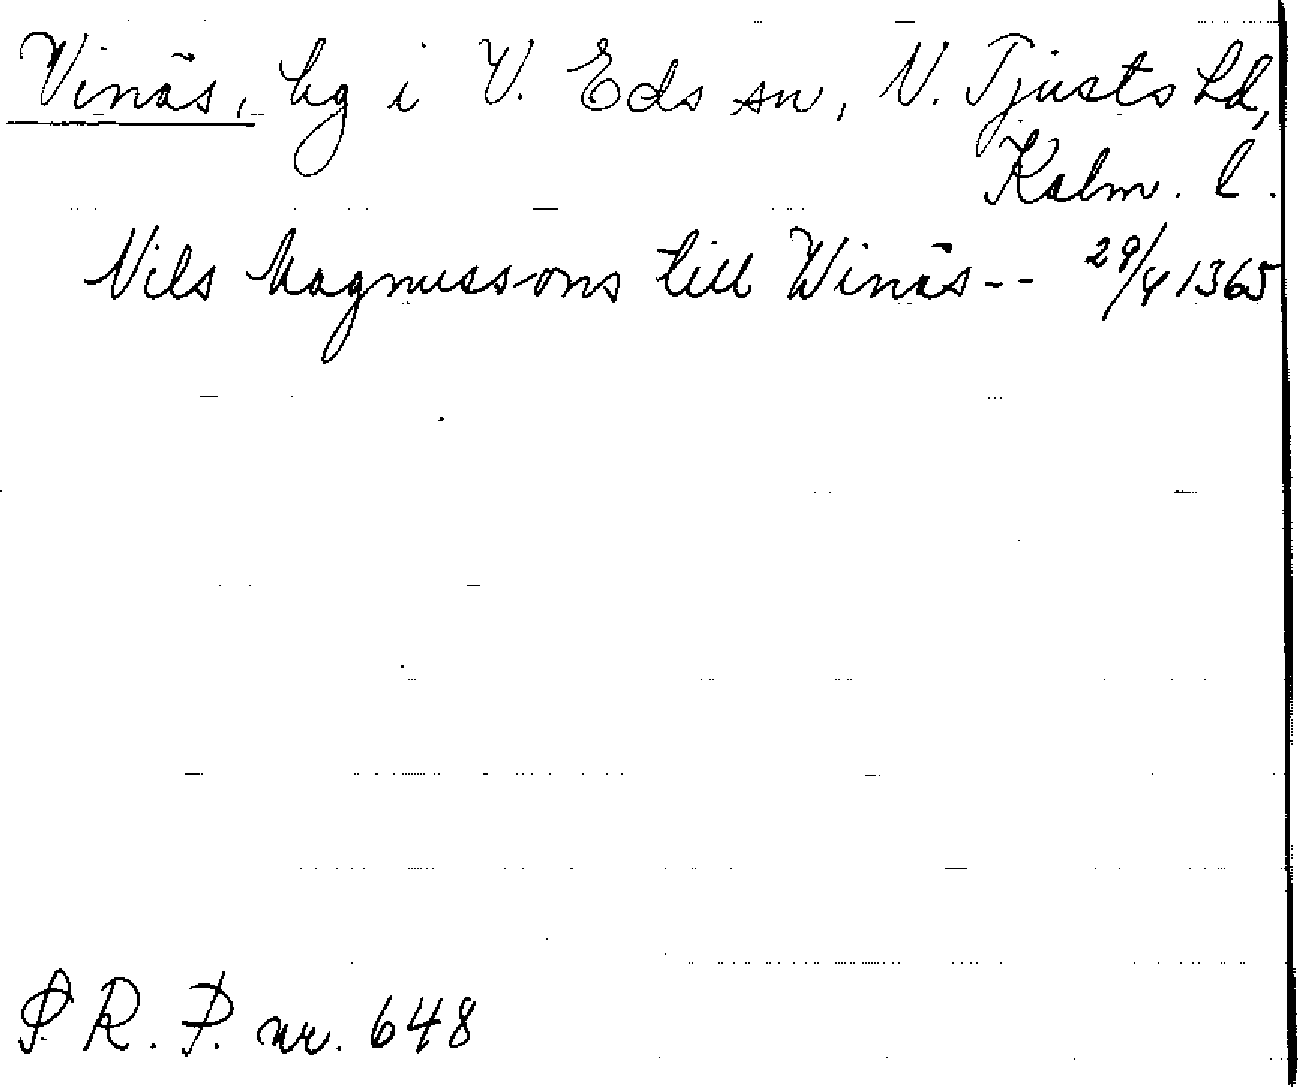 Vinäs, hg i V. Eds sn, N. Tjusts hd,
Kalm. l.
Nils Magnussons till Winäs -- 29/4 1365
S. R. P. nr. 648